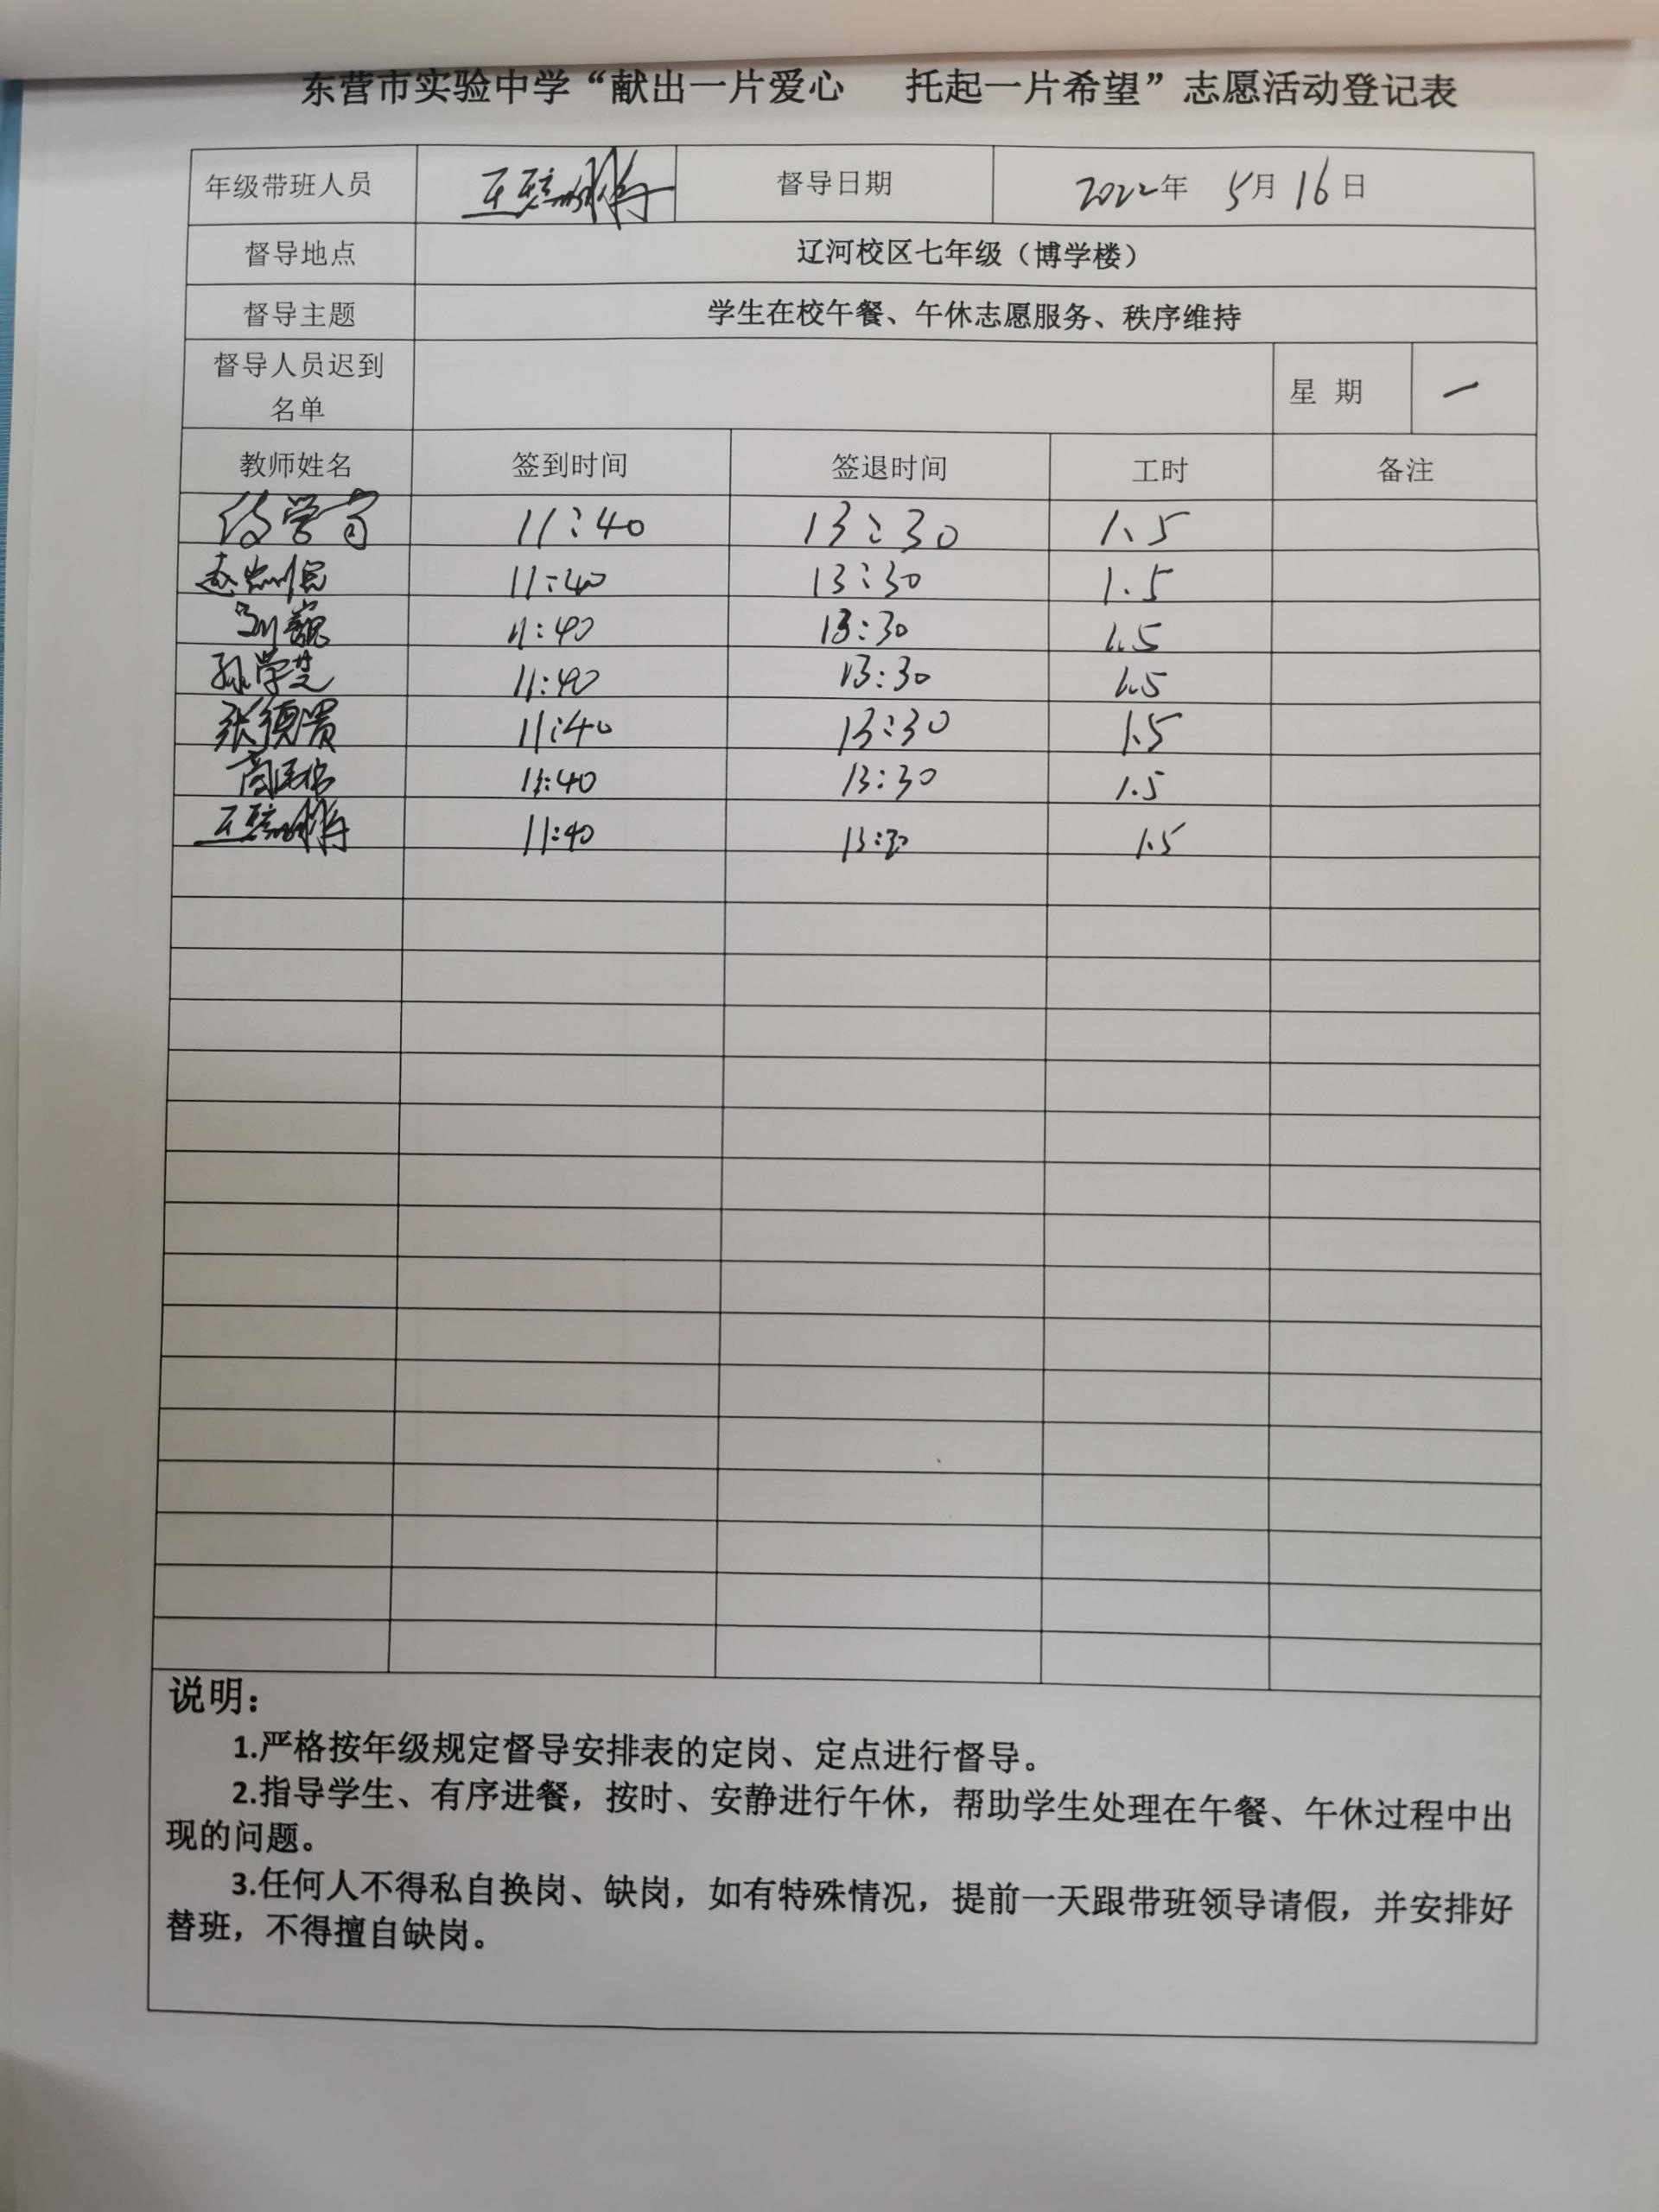 东营市实验中学“献出一片爱心 托起一片希望”志愿活动登记表
年级带班人员 督导日期 2022年 5月16日
督导地点 辽河校区七年级（博学楼）
督导主题 学生在校午餐、午休志愿服务、秩序维持
督导人员迟到名单 星 期 一
教师姓名 签到时间 签退时间 工时 备注
11:40 13:30 1.5
11:40 13:30 1.5
刘巍 11:40 13:30 1.5
孙学芝 11:40 13:30 1.5
张德贵 11:40 13:30 1.5
11:40 13:30 1.5
11:40 13:30 1.5
说明：
1.严格按年级规定督导安排表的定岗、定点进行督导。
2.指导学生、有序进餐，按时、安静进行午休，帮助学生处理在午餐、午休过程中出
现的问题。
3.任何人不得私自换岗、缺岗，如有特殊情况，提前一天跟带班领导请假，并安排好
替班，不得擅自缺岗。